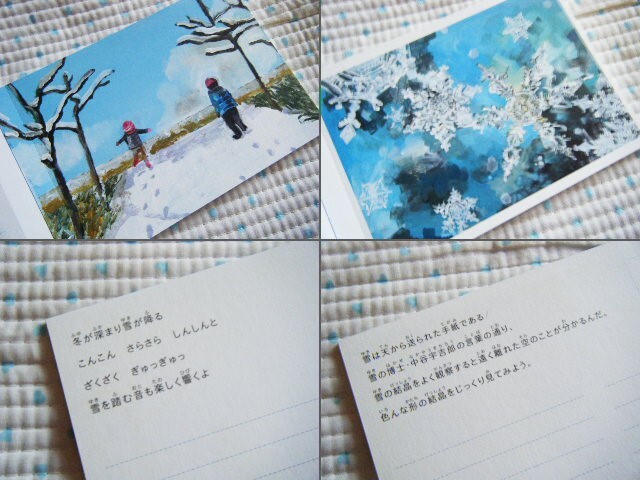 冬が深まり雪が降る
こんこん　さらさら　しんしんと
ざくざく　ぎゅっぎゅっ
雪を踏む音も楽しく響くよ
雪は天から送られた手紙である/
雪の博士・中谷宇吉郎の言葉の通り、
雪の結晶をよく観察すると遠く離れた空のことが分かるんだ。
色んな形の結晶をじっくり見てみよう。